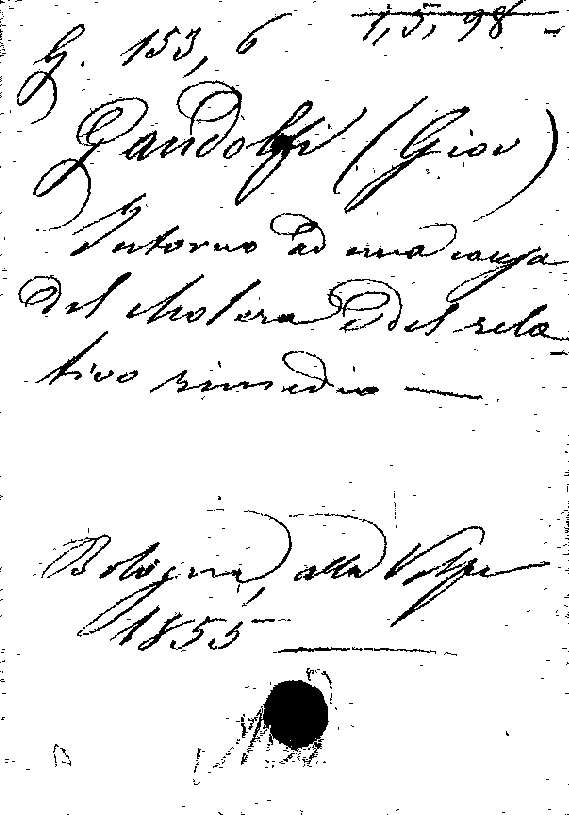 G. 153, 6 1,5,98-
Gandolfi (Giov)
Intorno ad una causa
del cholera e del rela-
tivo rimedio —
Bologna, alla Volpe
1855 —